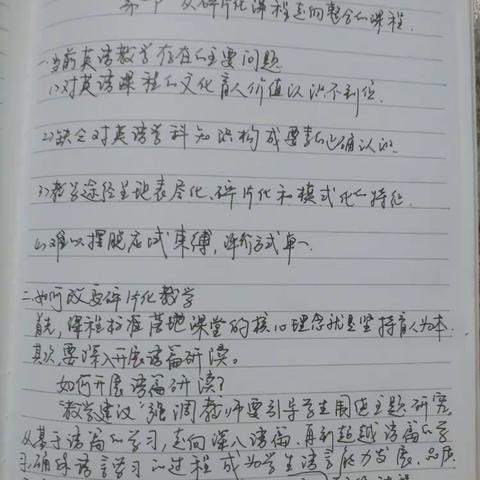 第一节 从碎片化课程走向整合的课程.
一.当前英语教学存在的主要问题.
1)对英语课程的文化育人价值认识不到位.
2)缺乏对英语学科知识构成要素的正确认识.
3)教学途径呈现表层化、碎片化和模式化的特征.
4)难以摆脱应试束缚,评价方式单一.
二.如何改变碎片化教学
首先,课程标准落地课堂的核心理念就是坚持育人为本.
其次,要深入开展语篇研读。
如何开展语篇研读?
"教学建议"强调教师要引导学生围绕主题研究,
从基于语篇的学习,走向深入语篇、再到超越语篇的学
习,确保语言学习的过程成为学生语言能力发展、品质